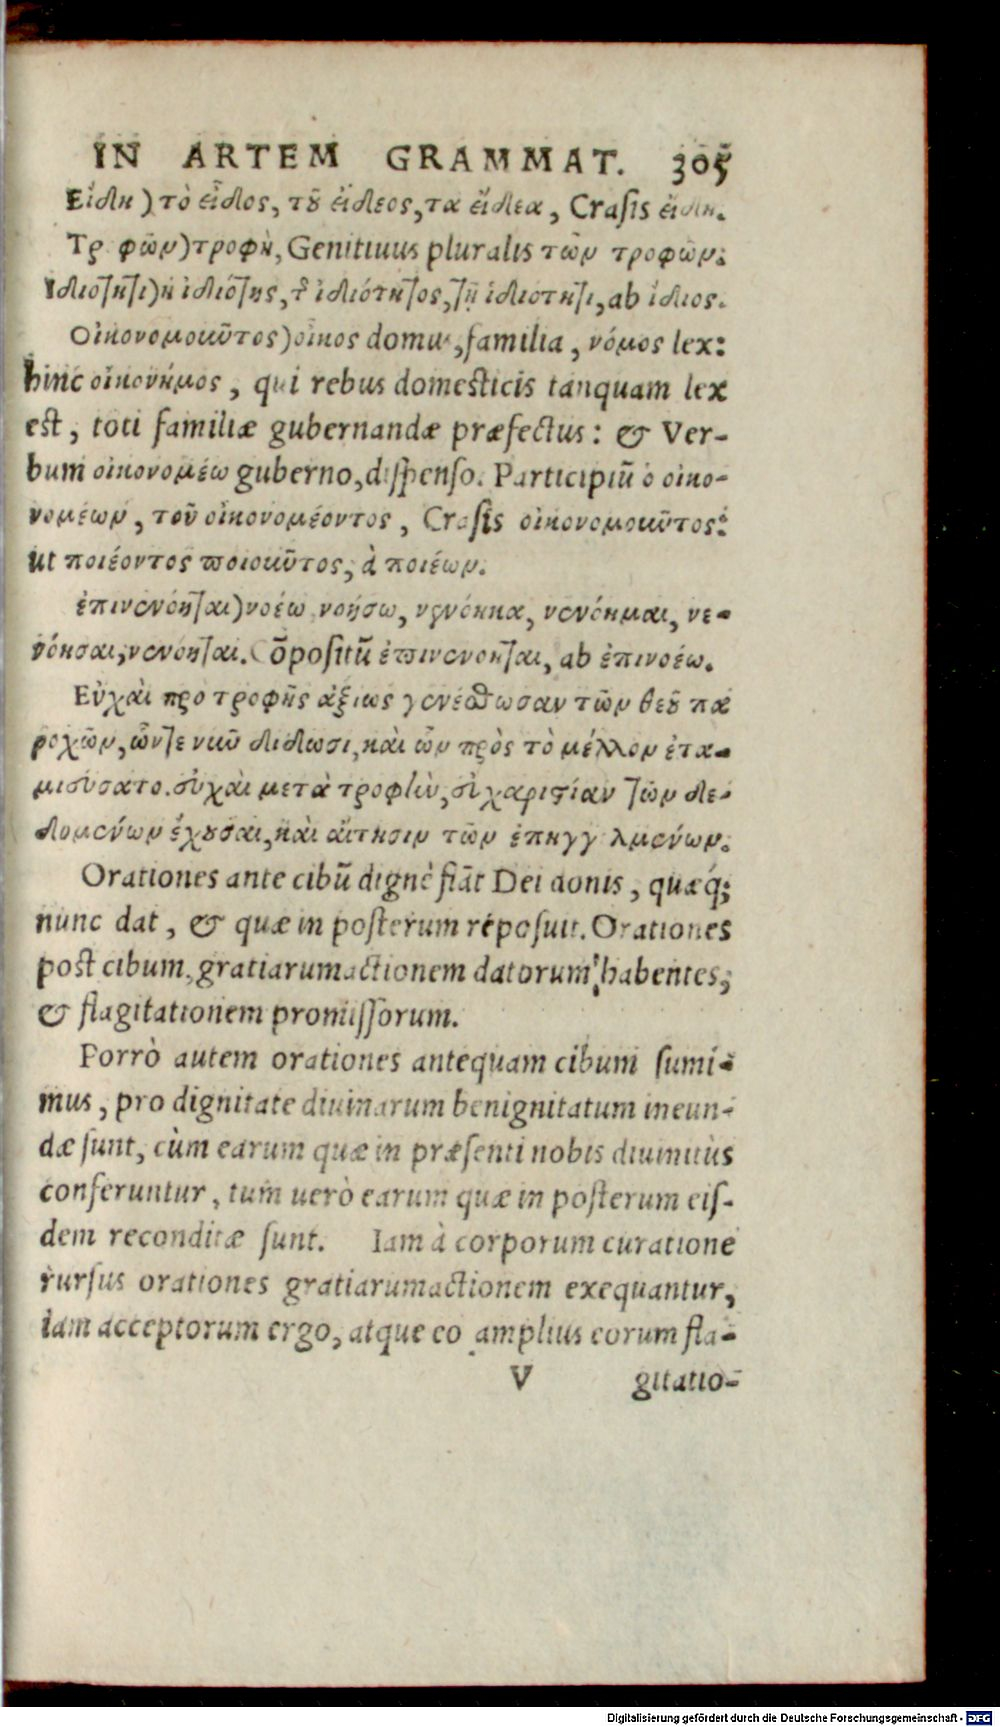 IN ARTEM GRAMMAT. 305
Εἴδη) τὸ εἶδος, τοῦ εἴδεος, τα εἴδεα, Crasis εἴδη.
Τροφῶν) τροφὴ, Genitiuus pluralis τῶν τροφῶν.
Ἰδιότητι) ἡ ἰδιότης, τῆς ἰδιότητος, τῇ ἰδιότητι, ab ἴδιος.
Οἰκονομοῦντος) οἶκος domus, familia, νόμος lex:
hinc οἰκονόμος, qui rebus domesticis tanquam lex
est, toti familiæ gubernandæ præfectus: & Ver-
bum οἰκονομέω guberno, dispenso. Participiũ ὁ οἰκο-
νομέων, τοῦ οἰκονομέοντος, Crasis οἰκονομοῦντος:
ut ποιέοντος ποιοῦντος, à ποιέων.
ἐπινενόηται) νοέω νοήσω, νενόηκα, νενόημαι, νε-
νόησαι, νενόηται. Cõpositũ ἐπινενόηται, ab ἐπινοέω.
Εὐχαὶ προ τροφῆς ἀξίως γενέσθωσαν τῶν θεοῦ πα
ροχῶν, ὧν τε νῦν δίδωσι, καὶ ὧν πρὸς τὸ μέλλον ἐτα-
μιεύσατο. εὐχαὶ μετὰ τροφὴν, εὐχαριστίαν τῶν δε-
δομένων ἔχουσαι, καὶ αἴτησιν τῶν ἐπηγγελμένων.
Orationes ante cibũ dignè fiãt Dei donis, quæq́;
nunc dat, & quæ in posterum reposuit. Orationes
post cibum, gratiarumactionem datorum habentes,
& flagitationem promissorum.
Porrò autem orationes antequam cibum sumi-
mus, pro dignitate diuinarum benignitatum ineun-
dæ sunt, cùm earum quæ in præsenti nobis diuinitùs
conferuntur, tum uerò earum quæ in posterum eis-
dem reconditæ sunt. Iam à corporum curatione
rursus orationes gratiarumactionem exequantur,
iam acceptorum ergo, atque eo amplius eorum fla-
V gitatio-
Digitalisierung gefördert durch die Deutsche Forschungsgemeinschaft - DFG